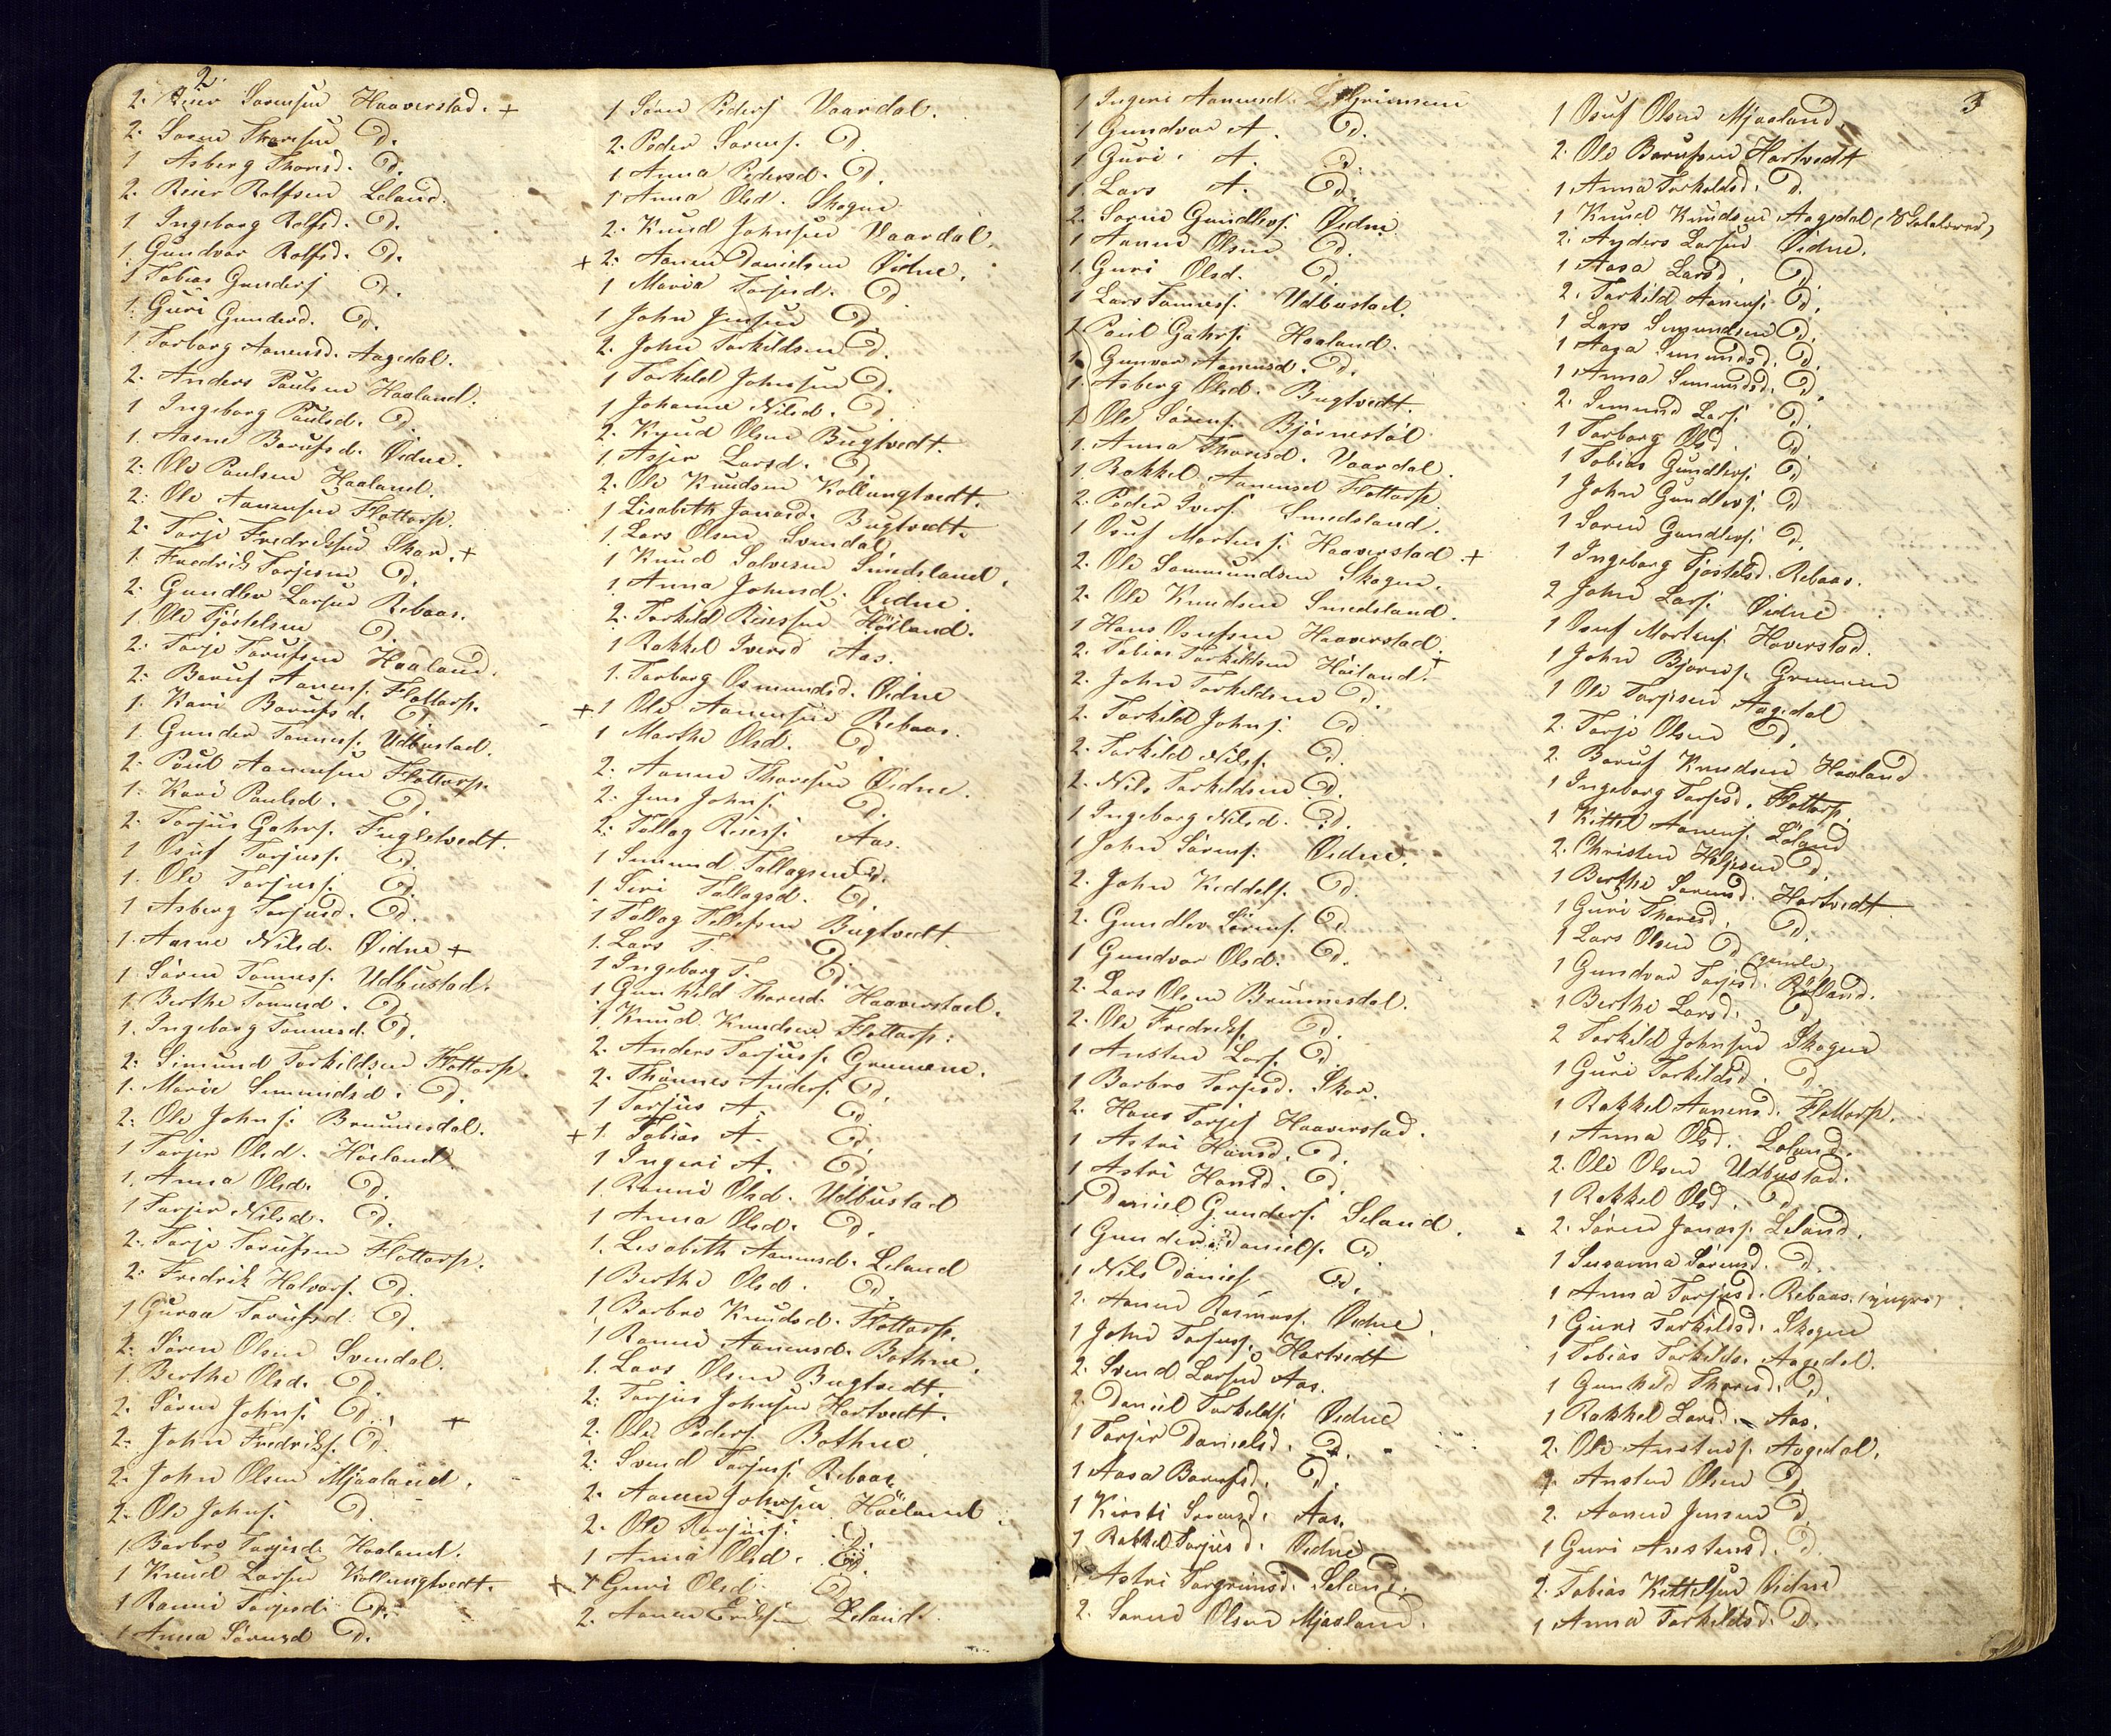 2.
2. Reier Sørensen Haaverstad. +
2. Søren Thoresen D.
1 Asberg Thoresd. D.
2. Reier Rolfsen Leland.
1 Ingeborg Rolfsd. D.
1 Gundvor Rolfsd. D.
1 Tobias Gundersf D.
1. Guri Gundersd. D.
1. Torborg Aanensd. Aagedal.
2. Anders Paulsen Haaland.
1 Ingeborg Paulsd. D.
1. Aasne Borufsd. Øidne.
2. Ole Paulsen Haaland.
2. Ole Aanensen Flottorp.
2. Torje Fredriksen Skar. +
1. Fredrik Torjesen D.
2. Gundlev Larsen Rebaas.
1. Ole Fjøstelsen D.
2. Torje Torufsen Haaland.
2. Boruf Aanens. Flottorp.
1. Kari Borufsd. D.
1. Gunder Tønness. Udbustad.
2. Poul Aanensen Flottorp.
1. Kari Paulsd. D.
2. Torjus Gahrs. Fuglestvedt.
1 Osuf Torjuss. D.
1. Ole Torjuss. D.
1 Asberg Torjusd. D.
1. Aasne Nilsd. Øidne +
1 Søren Tønness. Udbustad.
1. Berthe Tønnesd. D.
1. Ingeborg Tønnesd. D.
2. Simund Torkildsen Flottorp.
1. Marie Simundsd. D.
2. Ole Johns. Brunnesdal.
1 Torjer Olsd. Høiland.
1. Anna Olsd. D.
1 Torjer Nilsd. D.
2. Torje Torufsen Flottorp.
2. Fredrik Halvors. D.
1 Guroa Torufsd. D.
2. Søren Olsen Svendal.
1. Berthe Olsd. D.
2. Søren Johns. D. +
2. John Fredriks. D.
2. John Olsen Mjaaland.
2. Ole Johns. D.
1. Barbro Torjesd. Haaland.
1 Knud Larsen Kollungtvedt.
1 Ranni Torjesd. D.
1 Anna Sørensd D.
1 Søren Peders Vaardal.
2. Peder Sørens. D.
1 Anna Pedersd. D.
1 Anna Olsd. Skogen
2. Knud Johnsen Vaardal.
+ 2. Aanen Danielsen Øidne.
1 Maria Torjesd. D
1 John Jensen D.
2. John Torkildsen D.
1 Torkild Johnsen D.
1 Johanne Nilsd. D.
2. Knud Olsen Bugtvedt.
1. Asjer Larsd. D.
2. Ole Knudsen Kollungtvedt.
1 Lisabeth Jonasd. Bugtvedt.
1. Lars Olsen Svendal
1 Knud Salvesen Smedsland.
1. Anna Johnsd. Øidne.
2. Torkild Reiersen Høiland.
1 Rakkel Iversd Aas.
1. Torborg Osmundsd. Øidne
+ 1 Ole Aanensen Rebaas.
1 Marthe Olsd. D.
2. Aanen Thoresen Øidne.
2. Jens Johns. D.
2. Tallag Reiers. Aas.
1 Simund Tallagsen D.
1. Siri Tallagsd. D.
1 Tallag Tellefsen Bugtvedt.
1. Lars T. D.
1 Ingeborg T. D.
1 Gunhild Thoresd. Haaverstad.
1 Knud Knudsen Flottorp.
2. Anders Torjuss. Grummen.
2. Thønnes Anders. D.
1 Torjus A. D.
+ 1. Tobias A. D.
1 Ingeri A. D.
1. Ranni Olsd. Udbustad
1 Anna Olsd. D.
1. Lisabeth Aanensd. Leland
1 Berthe Olsd. D.
1. Barbro Knudsd. Flottorp.
1 Ranni Aanensd. Bothne.
1. Lars Olsen Bugtvedt.
2. Torjus Johnsen Hartvedt.
2. Ole Peders. Bothne
2. Svend Torjuss. Rebaas
2. Aanen Johnsen Høiland.
2. Ole Torjuss. D.
1 Anna Olsd. D.
+ 1 Guri Olsd. D.
2. Aanen Eriksen Leland.
1 Ingeri Aanensd. Grummen
1 Gundvor A. D.
1 Guri. A. D.
1. Lars A. D.
2. Søren Gundlevs. Øidne
1 Aanen Olsen D.
1. Guri Olsd. D.
1 Lars Tønness. Udbustad.
1 Paul Gahrs. Haaland.
1. Gunvor Aanensd. D.
1. Asberg Olsd. Bugtvedt.
1 Ole Sørens. Bjørnestøl
1. Anna Thoresd. Vaardal.
1. Rakkel Aanensd Flottorp.
2. Peder Ivers. Smedsland.
1 Osuf Mortens. Haaverstad +
2. Ole Sommundsen Skogen.
2. Ole Knudsen Smedsland.
1 Hans Osufsen Haaverstad. +
2. Tobias Torkildsen Høiland.
2. John Torkildsen D.
2. Torkild Johns. D.
2. Torkild Nils. D.
2. Nils Torkildsen D.
1 Ingeborg Nilsd. D.
1 John Sørens. Øidne.
2. John Keddels. D.
2. Gundlev Sørens. D.
1 Gundvor Olsd. D.
2. Lars Olsen Brunnesdal.
2. Ole Fredriks. D.
1 Ansten Lars. D.
1 Barbro Torjesd. Skar.
2. Hans Torjes Haaverstad.
1 Astri Hansd. D.
1 Astri Hansd. D.
1 Daniel Gunders. Leland.
1 Gunder Daniels. D.
1 Nils Daniels D.
2. Aanen Rasmuss. Øidne.
1 John Torjuss. Hartvedt
2. Svend Larsen Aas.
2. Daniel Torkilds. Øidne
1 Torjer Danielsd. D.
1 Aasa Borufsd. D.
1 Kirsti Sørensd. Aas.
1 Rakkel Torjesd. Øidne
Astri Torgrimsd. Leland.
2. Søren Olsen Mjaaland.
3
1 Osuf Olsen Mjaaland.
2. Ole Borufsen Hartvedt
1 Anna Torkildsd. D.
1 Knud Knudsen Aagedal
2. Anders Larsen Øidne.
1 Aasa Larsd. D.
2. Torkild Aanens. D.
1 Lars Simundsen D.
1 Aasa Simundsd. D.
1 Anna Simundsd. D.
2. Simund Lars. D.
1 Torborg Olsd. D.
1 Tobias Gundlevs. D
1 John Gundlevs. D
1 Søren Gundlevs. D.
1 Ingeborg Fjøstelsd. Rebaas.
2 John Lars. Øidne
1 Osuf Mortens. Haverstad.
1 John Bjørns. Grummen
1 Ole Torjesen Aagedal
2. Torje Olsen D.
2. Boruf Knudsen Haaland
1 Ingeborg Torjesd. Flottorp.
1 Kittel Aanens. Løland
2. Christen Helgesen D.
1 Berthe Sørensd. Hartvedt
1 Guri Thoresd. D.
1 Lars Olsen D (gamle)
1 Gundvor Torjesd. Røiland.
1 Berthe Larsd. D
2 Torkild Johnsen Skogen
1 Guri Torkildsd. D
1 Rakkel Aanensd. Flottorp.
1 Anna Olsd. Leland.
2. Ole Olsen Udbustad.
1 Rakkel Olsd. D
2. Søren Jonass. Leland.
1 Susanna Sørensd. D.
1 Anna Torjesd. Rebaas. (yngre)
1 Guri Torkildsd. Skogen
1 Tobias Torkilds. Aagedal.
1 Gunhild Thoresd. D.
1 Rakkel Larsd. Aas.
2. Ole Anstens. Aagedal.
1. Ansten Olsen D.
2. Aanen Jensen D.
1 Guri Anstensd. D.
2. Tobias Kittelsen Øidne
1 Anna Torkildsd. D.